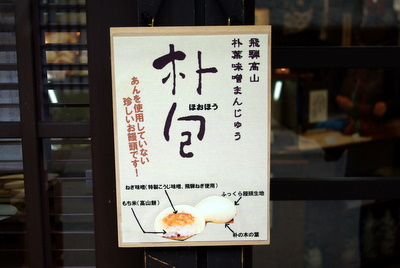 飛騨高山
朴葉味噌まんじゅう
朴包
ほおほう
あんを使用していない
珍しいお饅頭です!
ねぎ味噌(特製こうじ味噌、飛騨ねぎ使用)
ふっくら饅頭生地
もち米(高山餅)
朴の木の葉